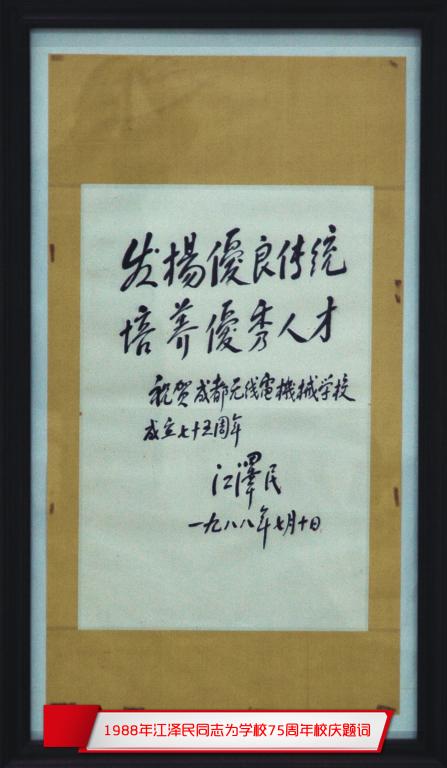 发揚優良传统
培养優秀人才
祝贺成都无线電機械学校
成立七十五周年
江澤民
一九八八年七月十日
1988年江泽民同志为学校75周年校庆题词